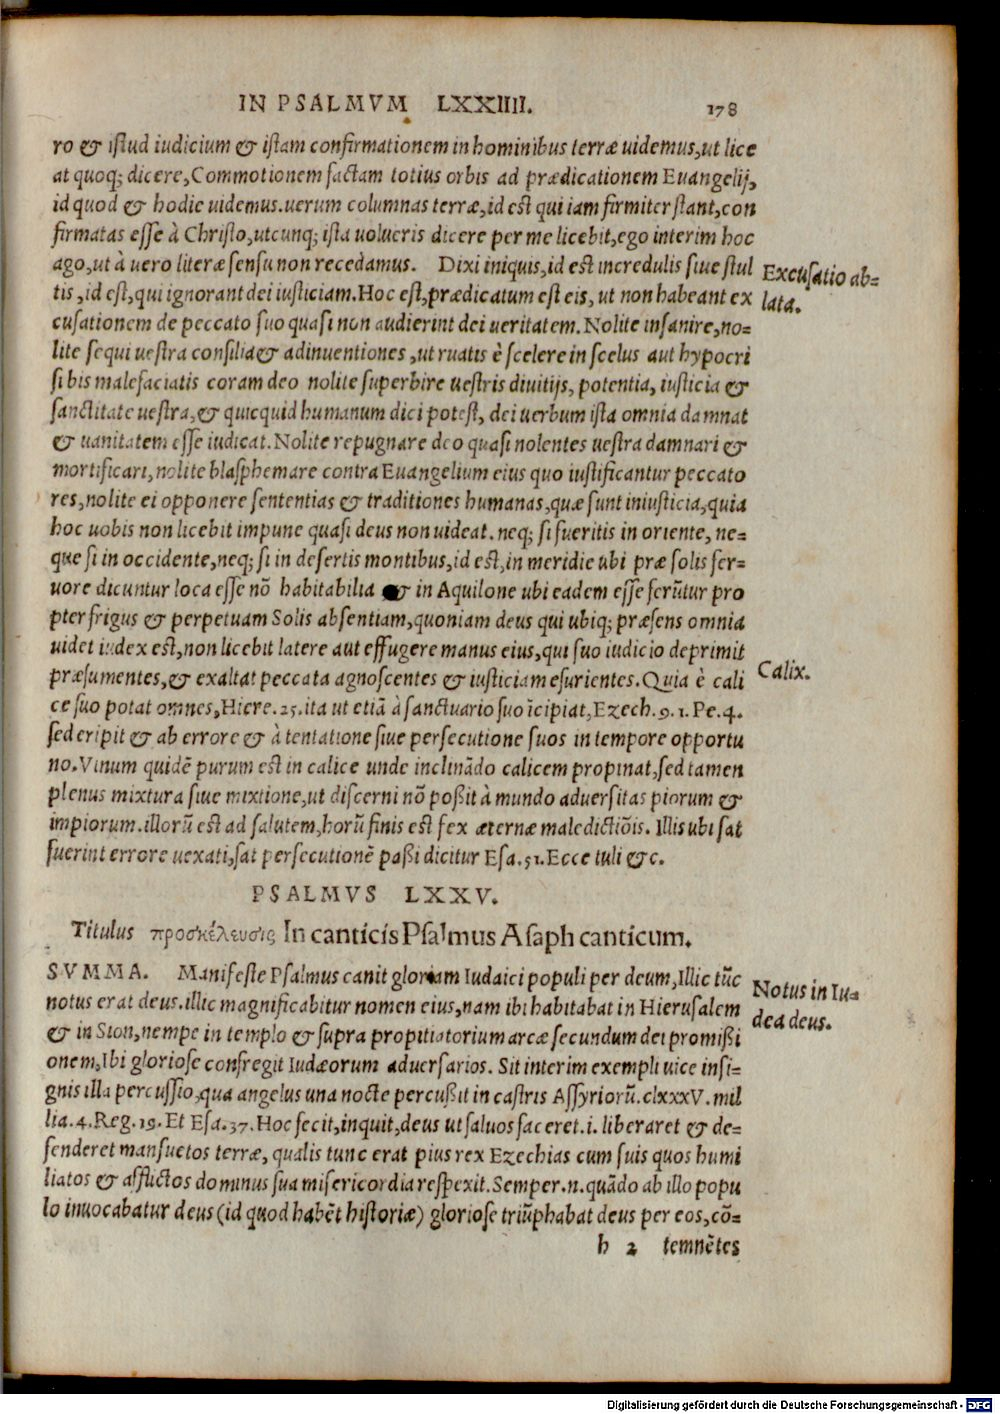 IN PSALMVM LXXIIII. 178
ro & istud iudicium & istam confirmationem in hominibus terræ uidemus,ut lice
at quoq; dicere,Commotionem factam totius orbis ad prædicationem Euangelij,
id quod & hodie uidemus.uerum columnas terræ,id est qui iam firmiter stant,con
firmatas esse à Christo,utcunq; ista uolueris dicere per me licebit,ego interim hoc
ago,ut à uero literæ sensu non recedamus. Dixi iniquis,id est incredulis siue stul
Excusatio ab=
lata.
tis,id est,qui ignorant dei iusticiam.Hoc est,prædicatum est eis, ut non habeant ex
cusationem de peccato suo quasi non audierint dei ueritatem.Nolite insanire,no=
lite sequi uestra consilia & adinuentiones,ut ruatis è scelere in scelus aut hypocri
si bis malefaciatis coram deo nolite superbire uestris diuitijs, potentia, iusticia &
sanctitate uestra,& quicquid humanum dici potest, dei uerbum ista omnia damnat
& uanitatem esse iudicat.Nolite repugnare deo quasi nolentes uestra damnari &
mortificari,nolite blasphemare contra Euangelium eius quo iustificantur peccato
res,nolite ei opponere sententias & traditiones humanas,quæ sunt iniusticia,quia
hoc uobis non licebit impune quasi deus non uideat.neq; si fueritis in oriente, ne=
que si in occidente,neq; si in desertis montibus,id est,in meridie ubi præ solis fer=
uore dicuntur loca esse nō habitabilia & in Aquilone ubi eadem esse ferūtur pro
pter frigus & perpetuam Solis absentiam,quoniam deus qui ubiq; præsens omnia
uidet iudex est,non licebit latere aut effugere manus eius,qui suo iudicio deprimit
præsumentes,& exaltat peccata agnoscentes & iusticiam esurientes.Quia è cali
Calix.
ce suo potat omnes,Hiere.25.ita ut etiā à sanctuario suo īcipiat,Ezech.9.1.Pe.4.
sed eripit & ab errore & à tentatione siue persecutione suos in tempore opportu
no.Vinum quidē purum est in calice unde inclinādo calicem propinat,sed tamen
plenus mixtura siue mixtione,ut discerni nō poßit à mundo aduersitas piorum &
impiorum.illorū est ad salutem,horū finis est fex æternæ maledictiōis. Illis ubi sat
fuerint errore uexati,sat persecutionē paßi dicitur Esa.51.Ecce tuli &c.
PSALMVS LXXV.
Titulus προσκέλευσις In canticis Psalmus Asaph canticum.
SVMMA. Manifeste Psalmus canit gloriam Iudaici populi per deum,Illic tūc
Notus in Iu=
dea deus.
notus erat deus.illic magnificabitur nomen eius,nam ibi habitabat in Hierusalem
& in Sion,nempe in templo & supra propitiatorium arcæ secundum dei promißi
onem,Ibi gloriose confregit Iudæorum aduersarios. Sit interim exempli uice insi=
gnis illa percussio,qua angelus una nocte percußit in castris Assyriorū.clxxxV.mil
lia.4.Reg.19.Et Esa.37.Hoc fecit,inquit,deus ut saluos faceret.i.liberaret & de=
fenderet mansuetos terræ, qualis tunc erat pius rex Ezechias cum suis quos humi
liatos & afflictos dominus sua misericordia respexit.Semper.n.quādo ab illo popu
lo inuocabatur deus (id quod habēt historiæ) gloriose triūphabat deus per eos,cō=
h 2 temnētes
Digitalisierung gefördert durch die Deutsche Forschungsgemeinschaft - DFG